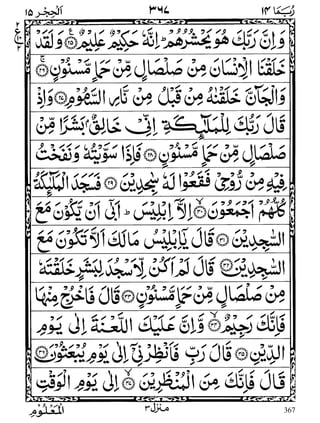 رُبَمَا ١٤ ٣٦٧ اَلْحِجْر ١٥
وَاِنَّ رَبَّكَ هُوَ يَحْشُرُهُمْ ؕ اِنَّهٗ حَكِيْمٌ عَلِيْمٌ ﴿۲۵﴾ وَلَقَدْ
خَلَقْنَا الْاِنْسَانَ مِنْ صَلْصَالٍ مِّنْ حَمَاٍ مَّسْنُوْنٍ ﴿۲۶﴾
وَالْجَآنَّ خَلَقْنٰهُ مِنْ قَبْلُ مِنْ نَّارِ السَّمُوْمِ ﴿۲۷﴾ وَاِذْ
قَالَ رَبُّكَ لِلْمَلٰٓئِكَةِ اِنِّىْ خَالِقٌۢ بَشَرًا مِّنْ
صَلْصَالٍ مِّنْ حَمَاٍ مَّسْنُوْنٍ ﴿۲۸﴾ فَاِذَا سَوَّيْتُهٗ وَنَفَخْتُ
فِيْهِ مِنْ رُّوْحِىْ فَقَعُوْا لَهٗ سٰجِدِيْنَ ﴿۲۹﴾ فَسَجَدَ الْمَلٰٓئِكَةُ
كُلُّهُمْ اَجْمَعُوْنَ ﴿۳۰﴾ اِلَّاۤ اِبْلِيْسَ ؕ اَبٰٓى اَنْ يَّكُوْنَ مَعَ
السّٰجِدِيْنَ ﴿۳۱﴾ قَالَ يٰۤاِبْلِيْسُ مَا لَكَ اَلَّا تَكُوْنَ مَعَ
السّٰجِدِيْنَ ﴿۳۲﴾ قَالَ لَمْ اَكُنْ لِّاَسْجُدَ لِبَشَرٍ خَلَقْتَهٗ
مِنْ صَلْصَالٍ مِّنْ حَمَاٍ مَّسْنُوْنٍ ﴿۳۳﴾ قَالَ فَاخْرُجْ مِنْهَا
فَاِنَّكَ رَجِيْمٌ ﴿۳۴﴾ وَّاِنَّ عَلَيْكَ اللَّعْنَةَ اِلٰى يَوْمِ
الدِّيْنِ ﴿۳۵﴾ قَالَ رَبِّ فَاَنْظِرْنِىْۤ اِلٰى يَوْمِ يُبْعَثُوْنَ ﴿۳۶﴾
قَالَ فَاِنَّكَ مِنَ الْمُنْظَرِيْنَ ﴿۳۷﴾ اِلٰى يَوْمِ الْوَقْتِ
الْمَعْلُوْمِ منزل ٣ 367